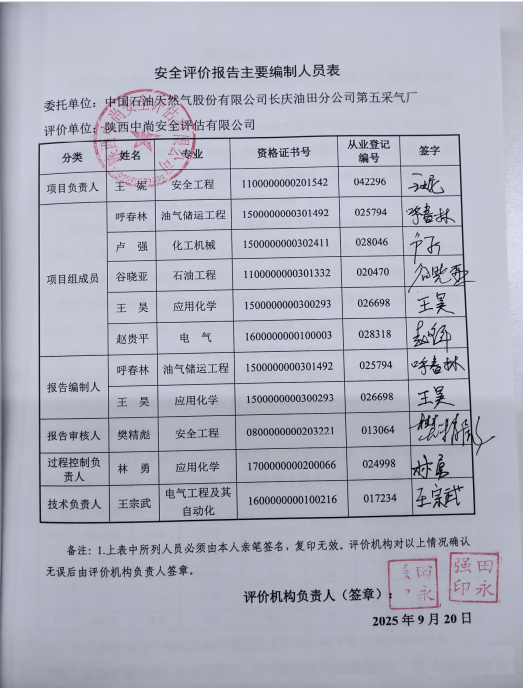 安全评价报告主要编制人员表
委托单位：中国石油天然气股份有限公司长庆油田分公司第五采气厂
评价单位：陕西中尚安全评估有限公司
分类 姓名 专业 资格证书号 从业登记编号 签字
项目负责人 王 妮 安全工程 1100000000201542 042296 王妮
项目组成员 呼春林 油气储运工程 1500000000301492 025794 呼春林
卢 强 化工机械 1500000000302411 028046
谷晓亚 石油工程 1100000000301332 020470 谷晓亚
王 昊 应用化学 1500000000300293 026698 王昊
赵贵平 电 气 1600000000100003 028318
报告编制人 呼春林 油气储运工程 1500000000301492 025794 呼春林
王 昊 应用化学 1500000000300293 026698 王昊
报告审核人 樊精彪 安全工程 0800000000203221 013064 樊精彪
过程控制负责人 林 勇 应用化学 1700000000200066 024998 林勇
技术负责人 王宗武 电气工程及其自动化 1600000000100216 017234 王宗武
备注：1.上表中所列人员必须由本人亲笔签名，复印无效。评价机构对以上情况确认
无误后由评价机构负责人签章。
评价机构负责人（签章）：
田永强印
田永
2025 年 9 月 20 日